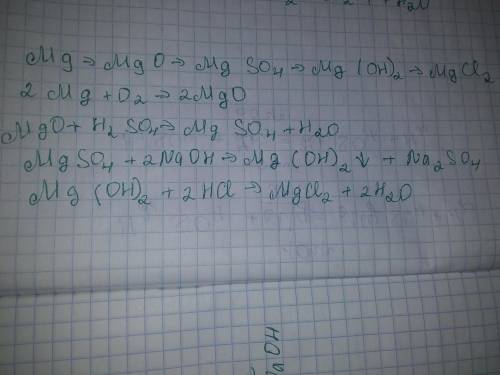 Mg → MgO → MgSO₄ → Mg(OH)₂ → MgCl₂
2Mg + O₂ → 2MgO
MgO + H₂SO₄ → MgSO₄ + H₂O
MgSO₄ + 2NaOH → Mg(OH)₂↓ + Na₂SO₄
Mg(OH)₂ + 2HCl → MgCl₂ + 2H₂O